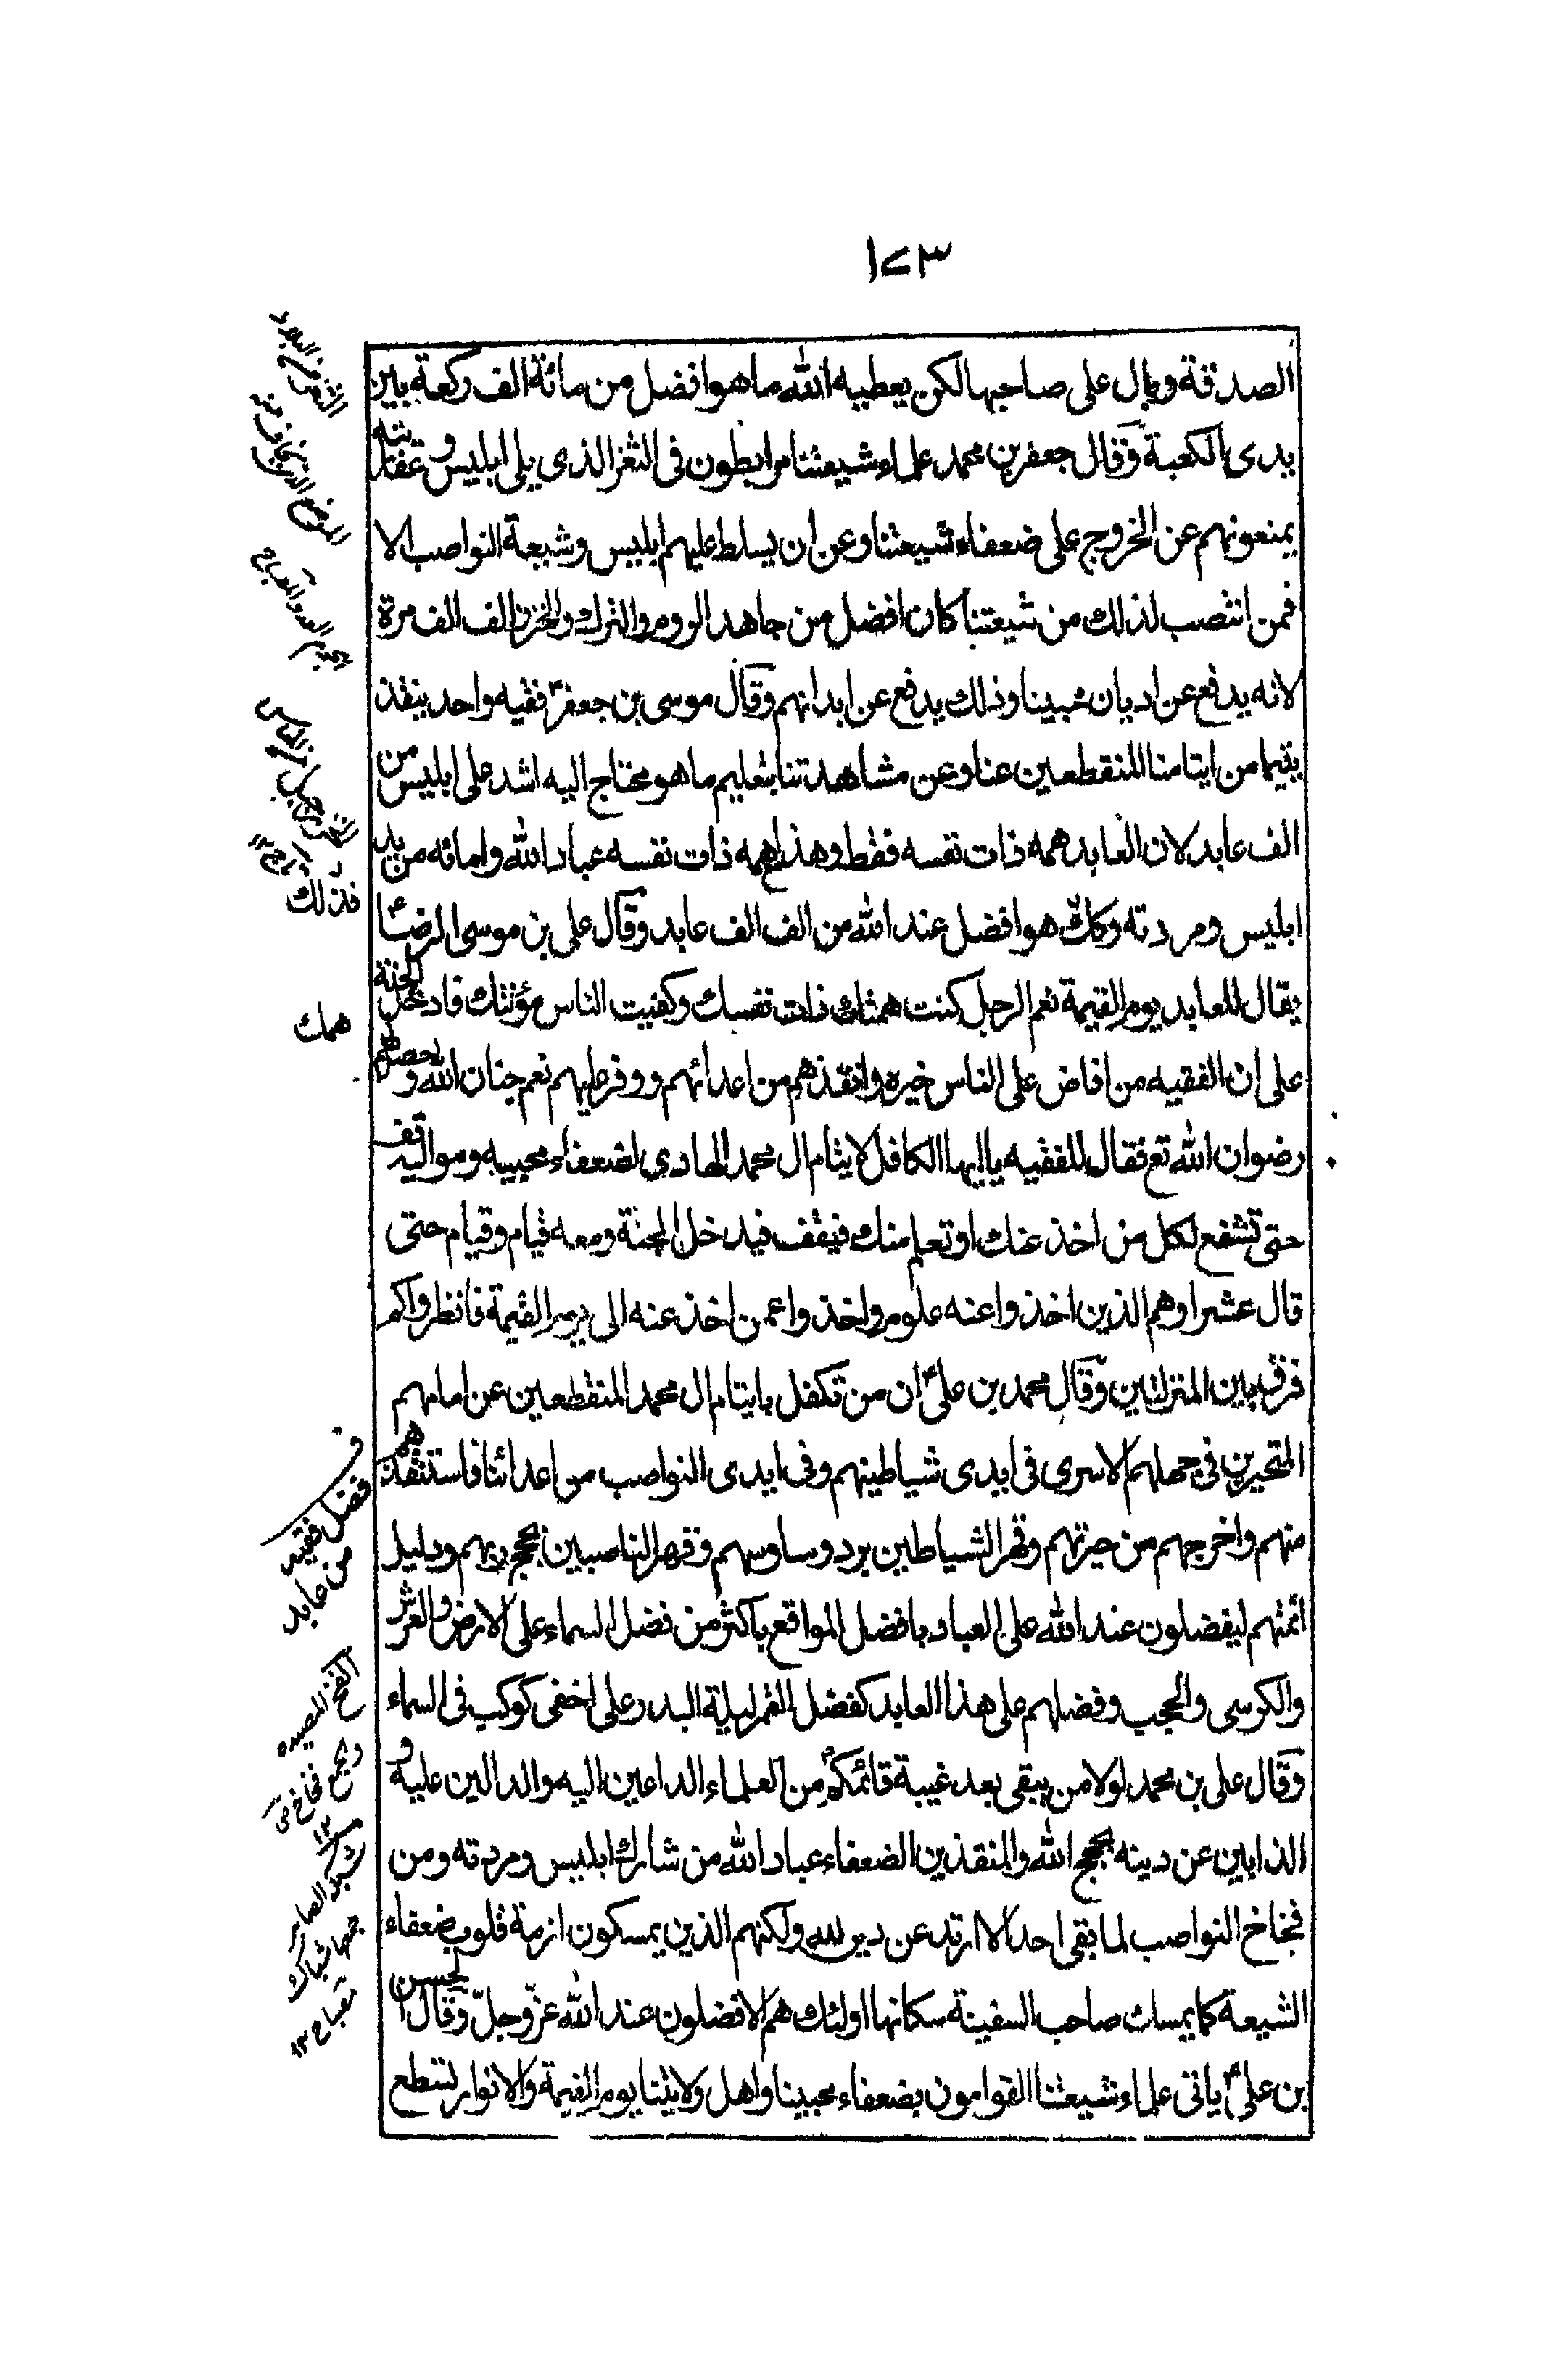 ١٧٣
الصدقة وبال على صاحبها لكن يعطيه الله ما هو افضل من مائة الف ركعة بين
يدى الكعبة وقال جعفر بن محمد علماء شيعتنا مرابطون فى الثغر الذى يلى ابليس و عفاريته
يمنعونهم عن الخروج على ضعفاء شيعتنا وعن ان يسلط عليهم ابليس وشيعة النواصب الا
فمن انتصب لذلك من شيعتنا كان افضل ممن جاهد الروم والترك والخزر الف الف مرة
لانه يدفع عن اديان محبينا وذلك يدفع عن ابدانهم وقال موسى بن جعفرؑ فقيه واحد ينقذ
يتيما من ايتامنا المنقطعين عنا وعن مشاهدتنا بتعليم ما هو محتاج اليه اشد على ابليس من
الف عابد لان العابد همه ذات نفسه فقط وهذا همه ذات نفسه عباد الله وامائه من يد
ابليس ومردته وكك هو افضل عند الله من الف الف عابد وقال على بن موسى الرضاؑ
يقال للعابد يوم القيمة نعم الرجل كنت همتك ذات نفسك وكفيت الناس مؤنتك فادخل الجنة
على ان الفقيه من افاض على الناس خيره وانقذهم من اعدائهم ووفر عليهم نعم جنان الله و حصل لهم
رضوان الله تع فقال للفقيه يا ايها الكافل لايتام ال محمد الهادى لضعفاء محبيه ومواليه قف
حتى تشفع لكل من اخذ عنك او تعلم منك فيقف فيدخل الجنة ومعه فيام وفيام حتى
قال عشرا وهم الذين اخذوا عنه علومه واخذوا عمن اخذ عنه الى يوم القيمة فانظروا كم
فرق بين المنزلتين وقال محمد بن علىؑ ان من تكفل بايتام ال محمد المنقطعين عن امامهم
المتحيرين فى جهلهم الاسرى فى ايدى شياطينهم وفى ايدى النواصب من اعدائنا فاستنقذهم
منهم واخرجهم من حيرتهم وقهر الشياطين برد وساوسهم وقهر الناصبين بحجج ربهم ودليل
ائمتهم ليفضلون عند الله على العباد بافضل المواقع باكثر من فضل السماء على الارض والعرش
والكرسى والحجب وفضلهم على هذا العابد كفضل القمر ليلة البدر على اخفى كوكب فى السماء
وقال على بن محمد لولا من يبقى بعد غيبة قائمكم من العلماء الداعين اليه والدالين عليه و
الذابين عن دينه بحجج الله والمنقذين الضعفاء عباد الله من شارك ابليس ومردته ومن
فخاخ النواصب لما بقى احد الا ارتد عن دين الله ولكنهم الذين يمسكون ازمة قلوب ضعفاء
الشيعة كما يمسك صاحب السفينة سكانها اولئك هم الافضلون عند الله عز وجل وقال الحسن
بن علىؑ ياتى علماء شيعتنا القوامون بضعفاء محبينا واهل ولايتنا يوم القيمة والانوار تسطع
الثغر من البلاد
الموضع الذى يخاف منه
فذلك
همك
ف
فضل فقيه
من عابد
الفخ المصيده
و يجمع فخاخ